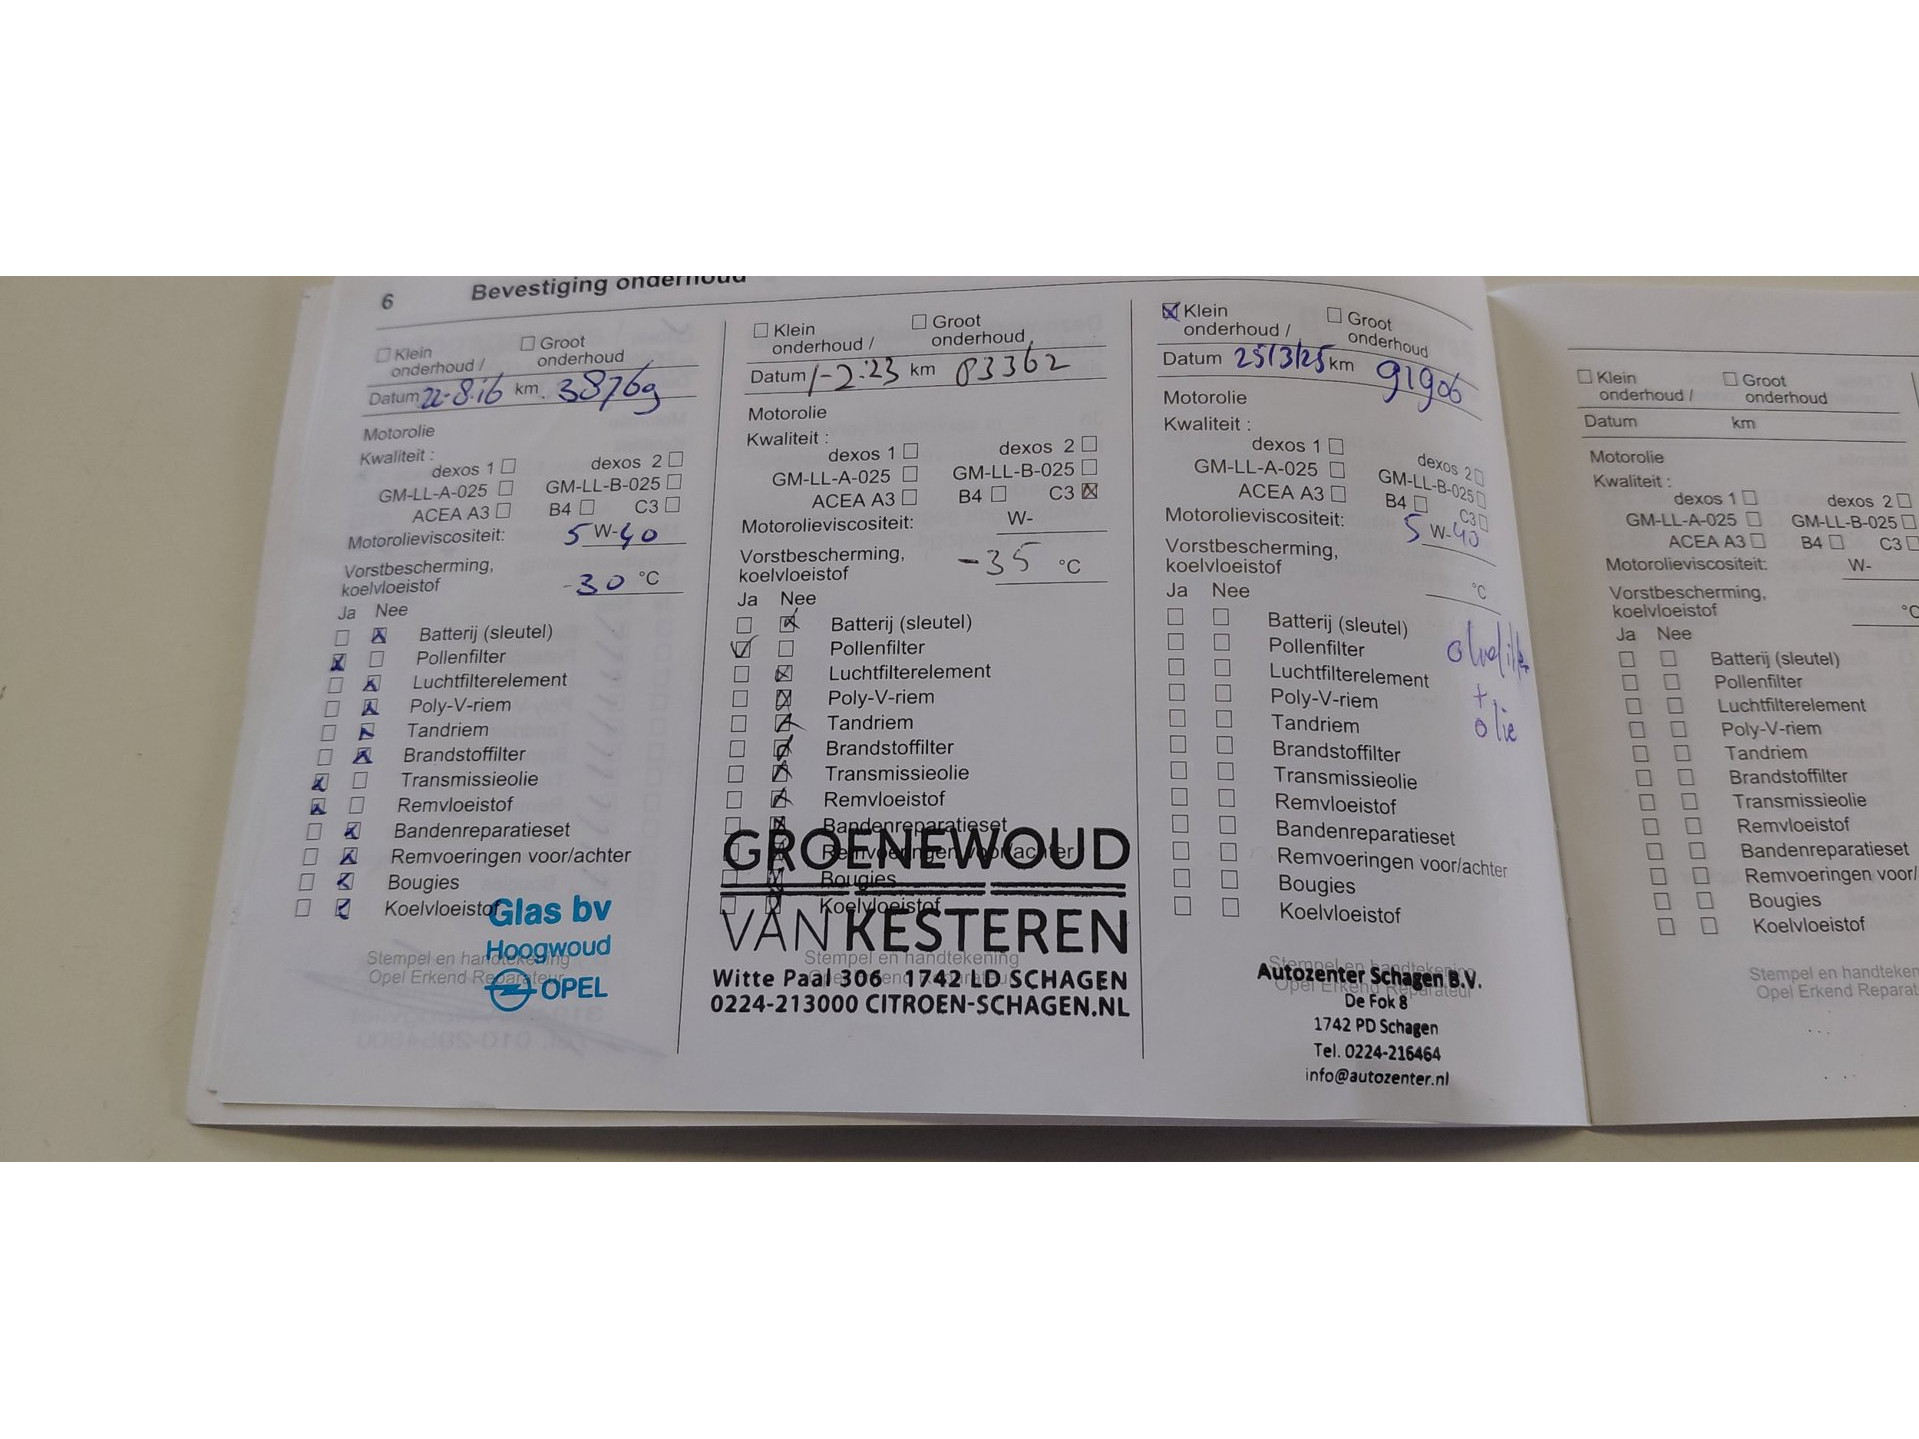 6 Bevestiging onderhoud
Klein onderhoud / Groot onderhoud
Datum 22-8.16 km. 38769
Motorolie
Kwaliteit :
dexos 1 dexos 2
GM-LL-A-025 GM-LL-B-025
ACEA A3 B4 C3
Motorolieviscositeit: 5 W-40
Vorstbescherming,
koelvloeistof -30 °C
Ja Nee
Batterij (sleutel)
Pollenfilter
Luchtfilterelement
Poly-V-riem
Tandriem
Brandstoffilter
Transmissieolie
Remvloeistof
Bandenreparatieset
Remvoeringen voor/achter
Bougies
Koelvloeistof
Glas bv
Hoogwoud
OPEL
Stempel en handtekening
Opel Erkend Reparateur
Klein onderhoud / Groot onderhoud
Datum 1-2.23 km 83362
Motorolie
Kwaliteit :
dexos 1 dexos 2
GM-LL-A-025 GM-LL-B-025
ACEA A3 B4 C3
Motorolieviscositeit: W-
Vorstbescherming,
koelvloeistof -35 °C
Ja Nee
Batterij (sleutel)
Pollenfilter
Luchtfilterelement
Poly-V-riem
Tandriem
Brandstoffilter
Transmissieolie
Remvloeistof
Bandenreparatieset
Remvoeringen voor/achter
Bougies
Koelvloeistof
GROENEWOUD
VAN KESTEREN
Stempel en handtekening
Witte Paal 306 1742 LD SCHAGEN
0224-213000 CITROEN-SCHAGEN.NL
Klein onderhoud / Groot onderhoud
Datum 25/3/25 km 91906
Motorolie
Kwaliteit :
dexos 1 dexos 2
GM-LL-A-025 GM-LL-B-025
ACEA A3 B4 C3
Motorolieviscositeit: 5 W-40
Vorstbescherming,
koelvloeistof °C
Ja Nee
Batterij (sleutel)
Pollenfilter
Luchtfilterelement
Poly-V-riem
Tandriem
Brandstoffilter
Transmissieolie
Remvloeistof
Bandenreparatieset
Remvoeringen voor/achter
Bougies
Koelvloeistof
+
olie
Stempel en handtekening
Opel Erkend Reparateur
Autozenter Schagen B.V.
De Fok 8
1742 PD Schagen
Tel. 0224-216464
info@autozenter.nl
Klein onderhoud / Groot onderhoud
Datum km
Motorolie
Kwaliteit :
dexos 1 dexos 2
GM-LL-A-025 GM-LL-B-025
ACEA A3 B4 C3
Motorolieviscositeit: W-
Vorstbescherming,
koelvloeistof °C
Ja Nee
Batterij (sleutel)
Pollenfilter
Luchtfilterelement
Poly-V-riem
Tandriem
Brandstoffilter
Transmissieolie
Remvloeistof
Bandenreparatieset
Remvoeringen voor/
Bougies
Koelvloeistof
Stempel en handteken
Opel Erkend Reparat